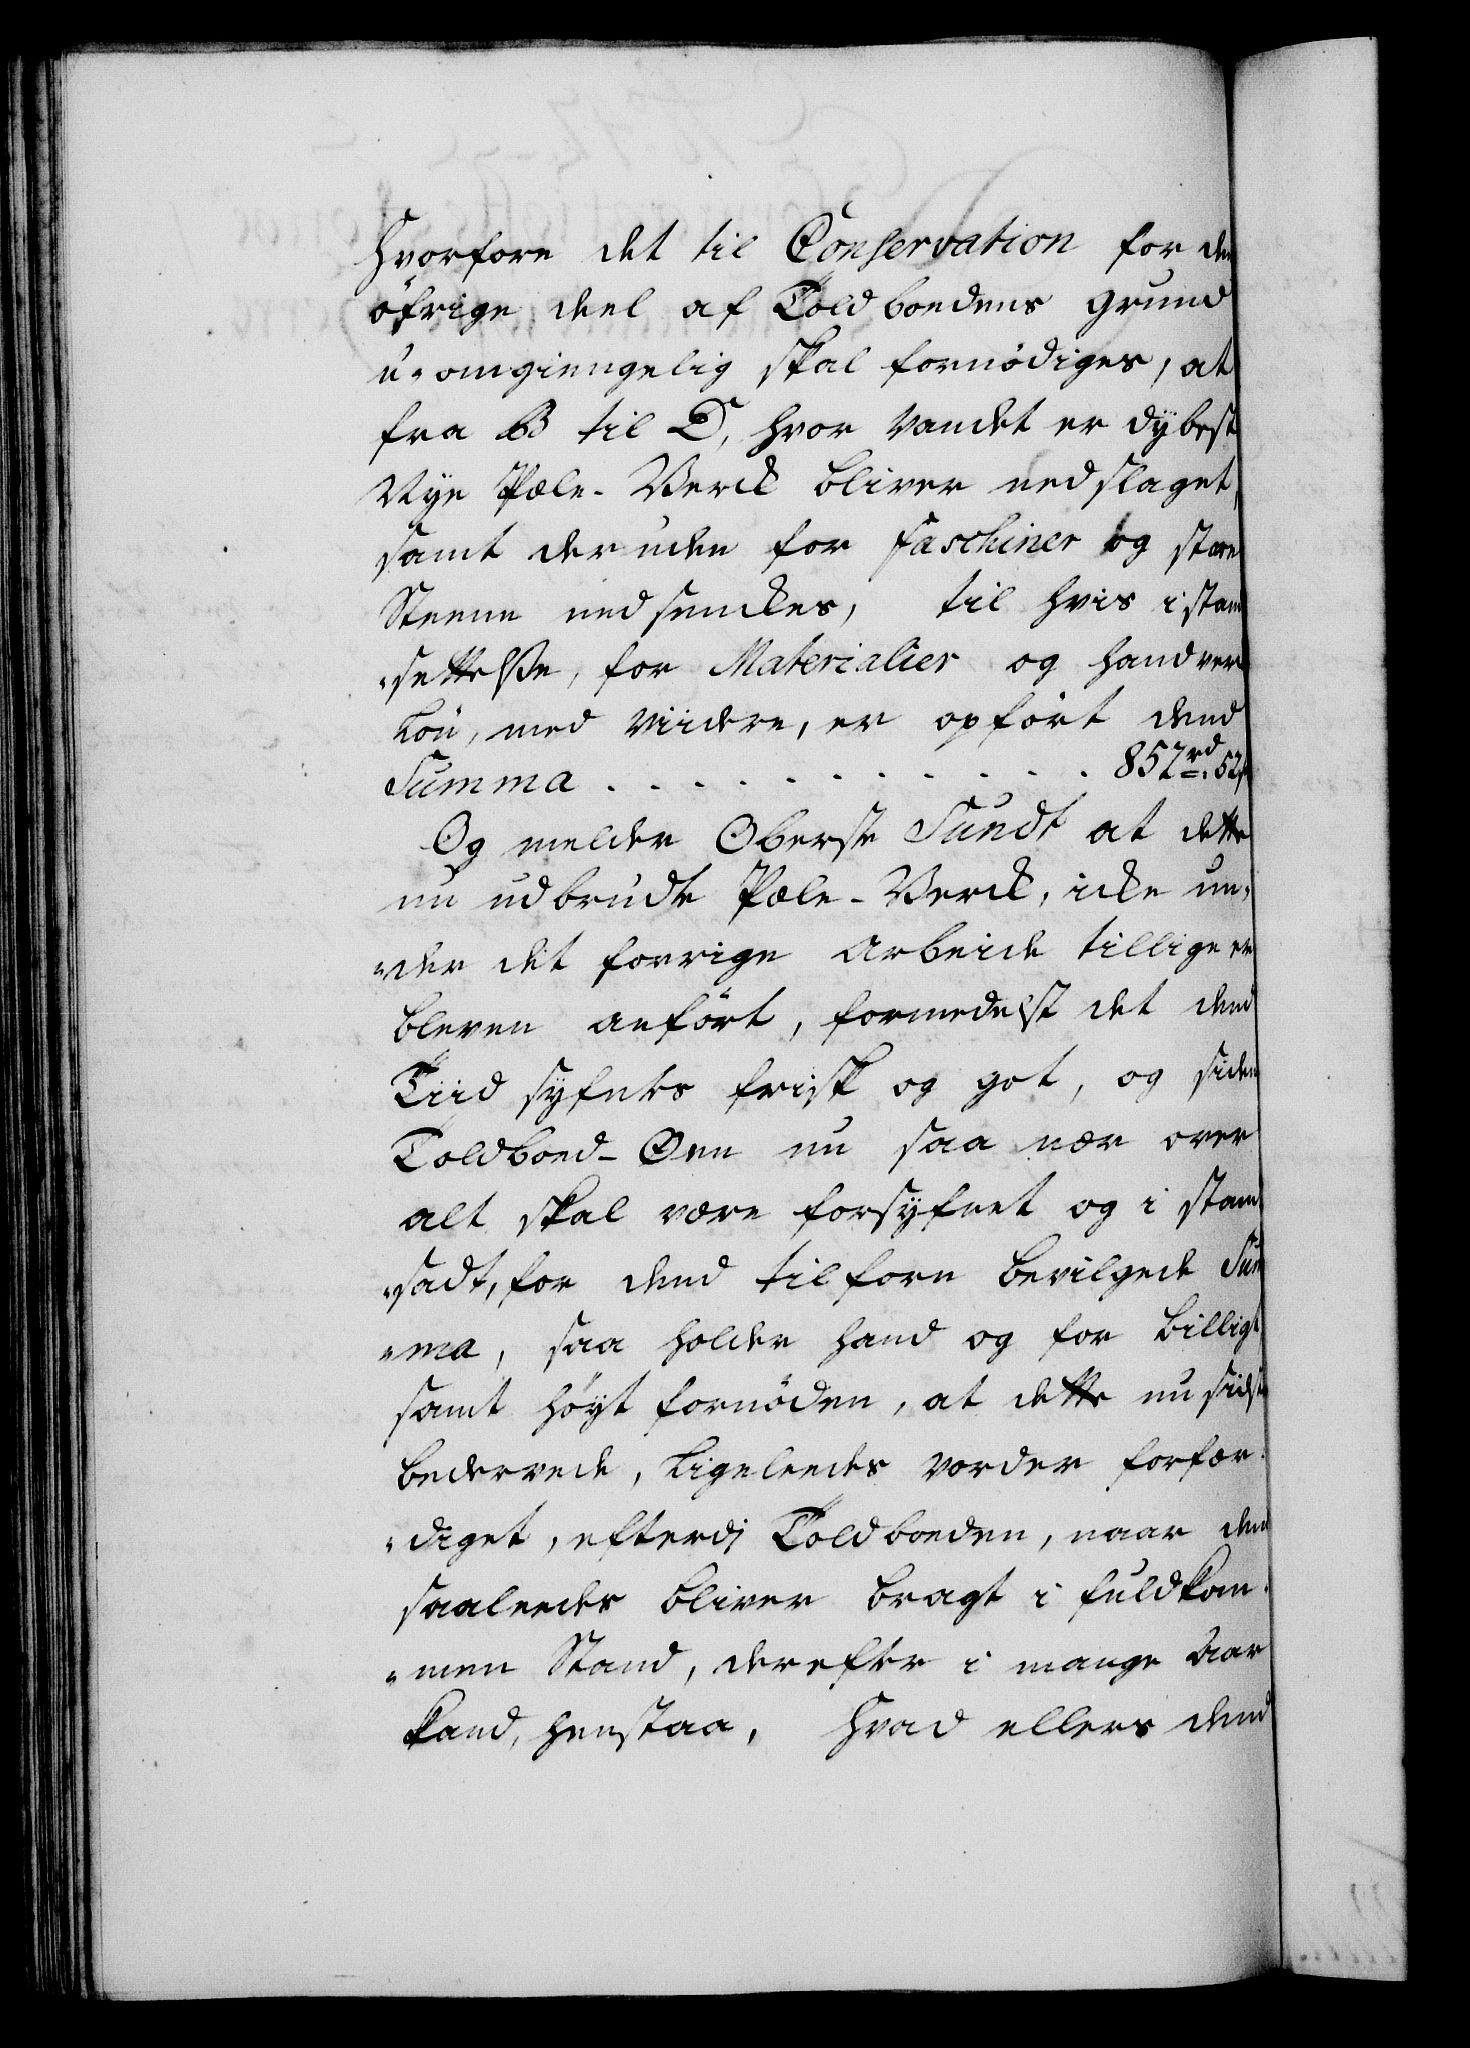 Hvorfore det til Conservation for den
öfrige deel af Toldboedens Grund
u-omgiengelig skal fornödiges, at
fra B til D, hvor Vandet er dÿbest
Nÿe Pæle-Verck bliver nedslaget,
samt der uden for Faschiner og store
Steene nedsenckes, til hvis istand
"settelße, for Materialier og handver
Lön, med viidere, er opfört dend
Summa . . . . . . . . . . . 852rd. 52s
Og melder Oberste Sundt at dette
nu udbrudte Pæle-Verck, icke un„
„der det forrige arbeide tillige er
bleven anfört, formedelst det dend
Tiid sÿfntes frisk og got, og siden
Toldboed-Öen nu saa nær over
alt skal være forsÿfnet og i stand
„sadt, for dend tilforn bevilgede Sum
„ma, saa holder hand og for billigt
samt höÿt fornöden, at dette nu sidst
bedervede, ligeleedes vorder forfær„
„diget, efterdj Toldboeden, naar dend
saaleedes bliver bragt i fuldkom„
„men Stand, derefter i mange Aar
kand, henstaa, Hvad ellers dend